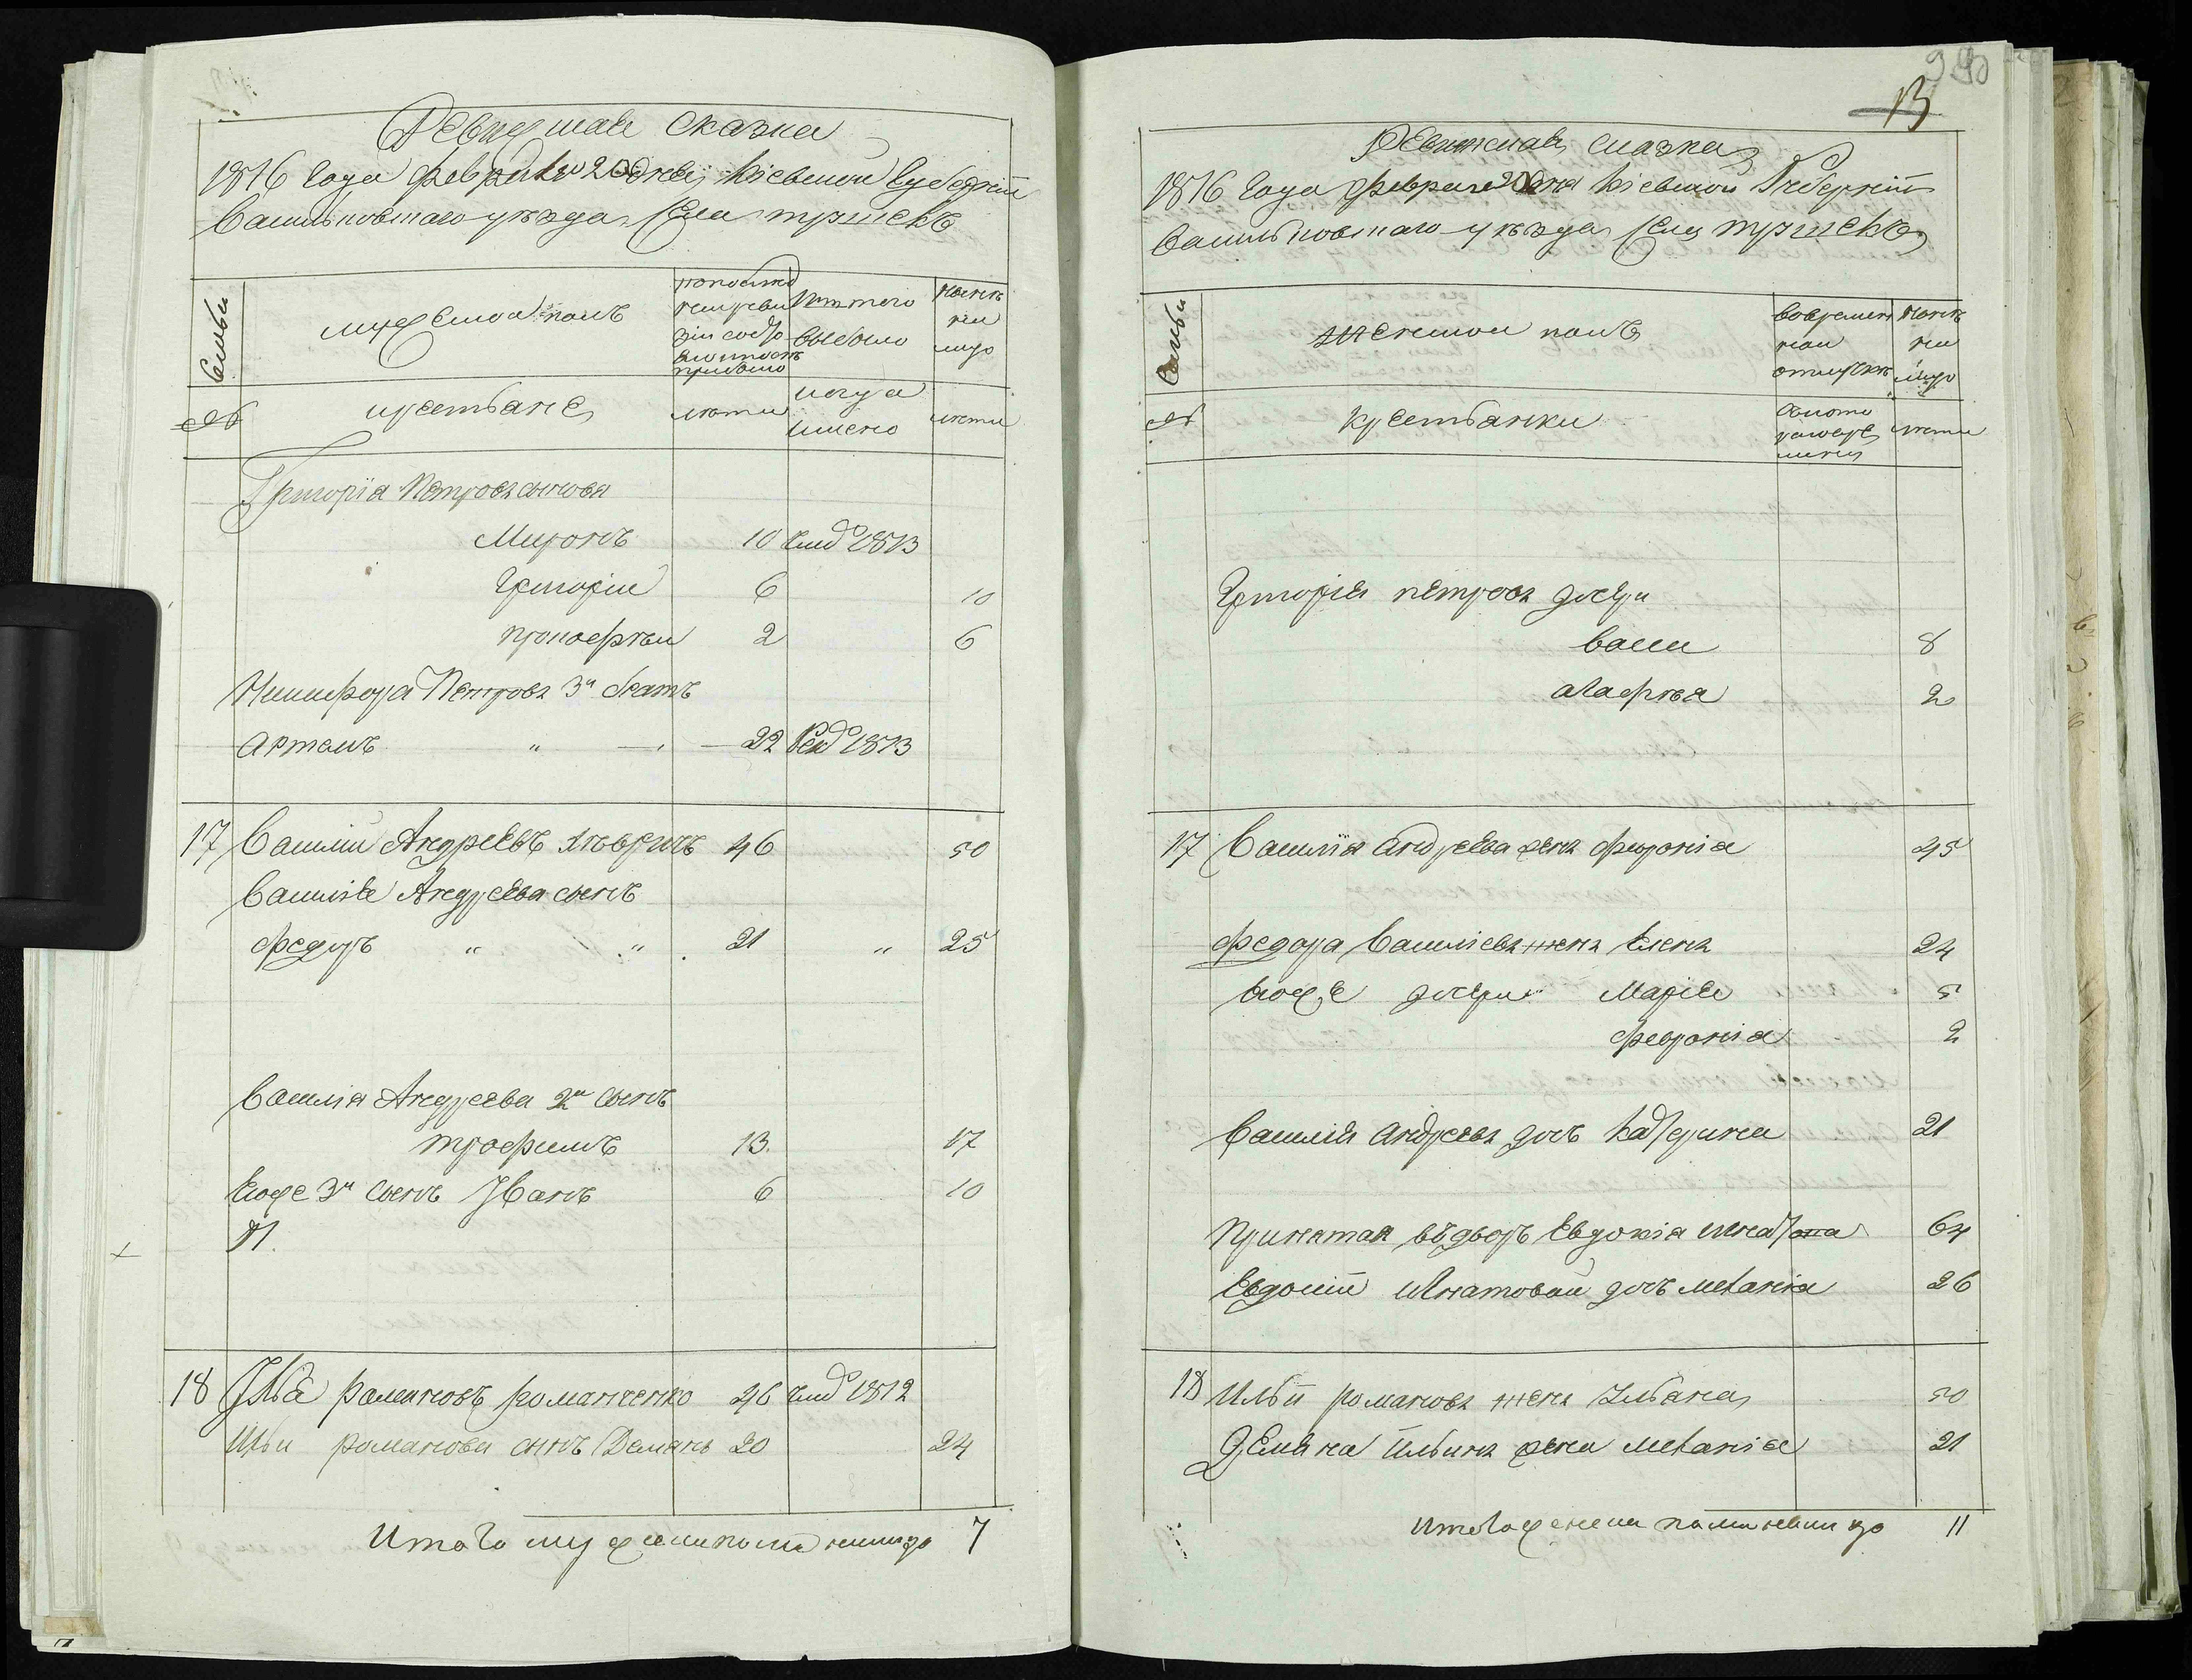 Ревижская сказка
1816 года февраля 20 дня Киевской Губернїи
Васильковскаго уезда села трилекъ
Семьи
мужескои полъ
по последней ревизїи состояло и после прибыло
Изъ того выбыло
Ныне на лицо
№
крестьяне
лета
когда именно
лета
Григорїа Петрова сынова
Миронъ 10 умр 1813
Григорїи 6 10
прокофеи 2 6
Никифора Петрова 3й братъ
артемъ " 22 рек 1813
17 Василїи Андреевъ 46 50
Василїя Андреева сынъ
федоръ " " 21 " 25
Василїя Андреева 2й сынъ
трофимъ 13 17
Егоже 3й сынъ Иванъ 6 10
18 Илья романовъ романченко 46 умр 1812
Ильи романова сынъ Демянъ 20 24
Итого мужеска пола налицо 7
940
13
Ревижская сказка
1816 Года февраля 20 дня Кїевской Губернїи
васильковскаго уезда села трилекъ
Семьи
женскои полъ
Во временной отлучке
Ныне на лицо
№
крестьянки
съ котораго времени
лета
Григорїя петрова дочери
васи 8
агафїя 2
17 Василїя андреева жена феуронїа 45
федора Василїева жена Елена 24
Егоже дочери Марїя 5
феуронїа 2
Василїя андреева дочь Катерина 21
Принятая въ дворъ Евдокїа игнатова 64
Евдокїи Игнатовой дочь меланїа 26
18 Ильи романова жена Ульяна 50
Демяна Ильина жена меланїа 21
Итого женска пола налицо 11